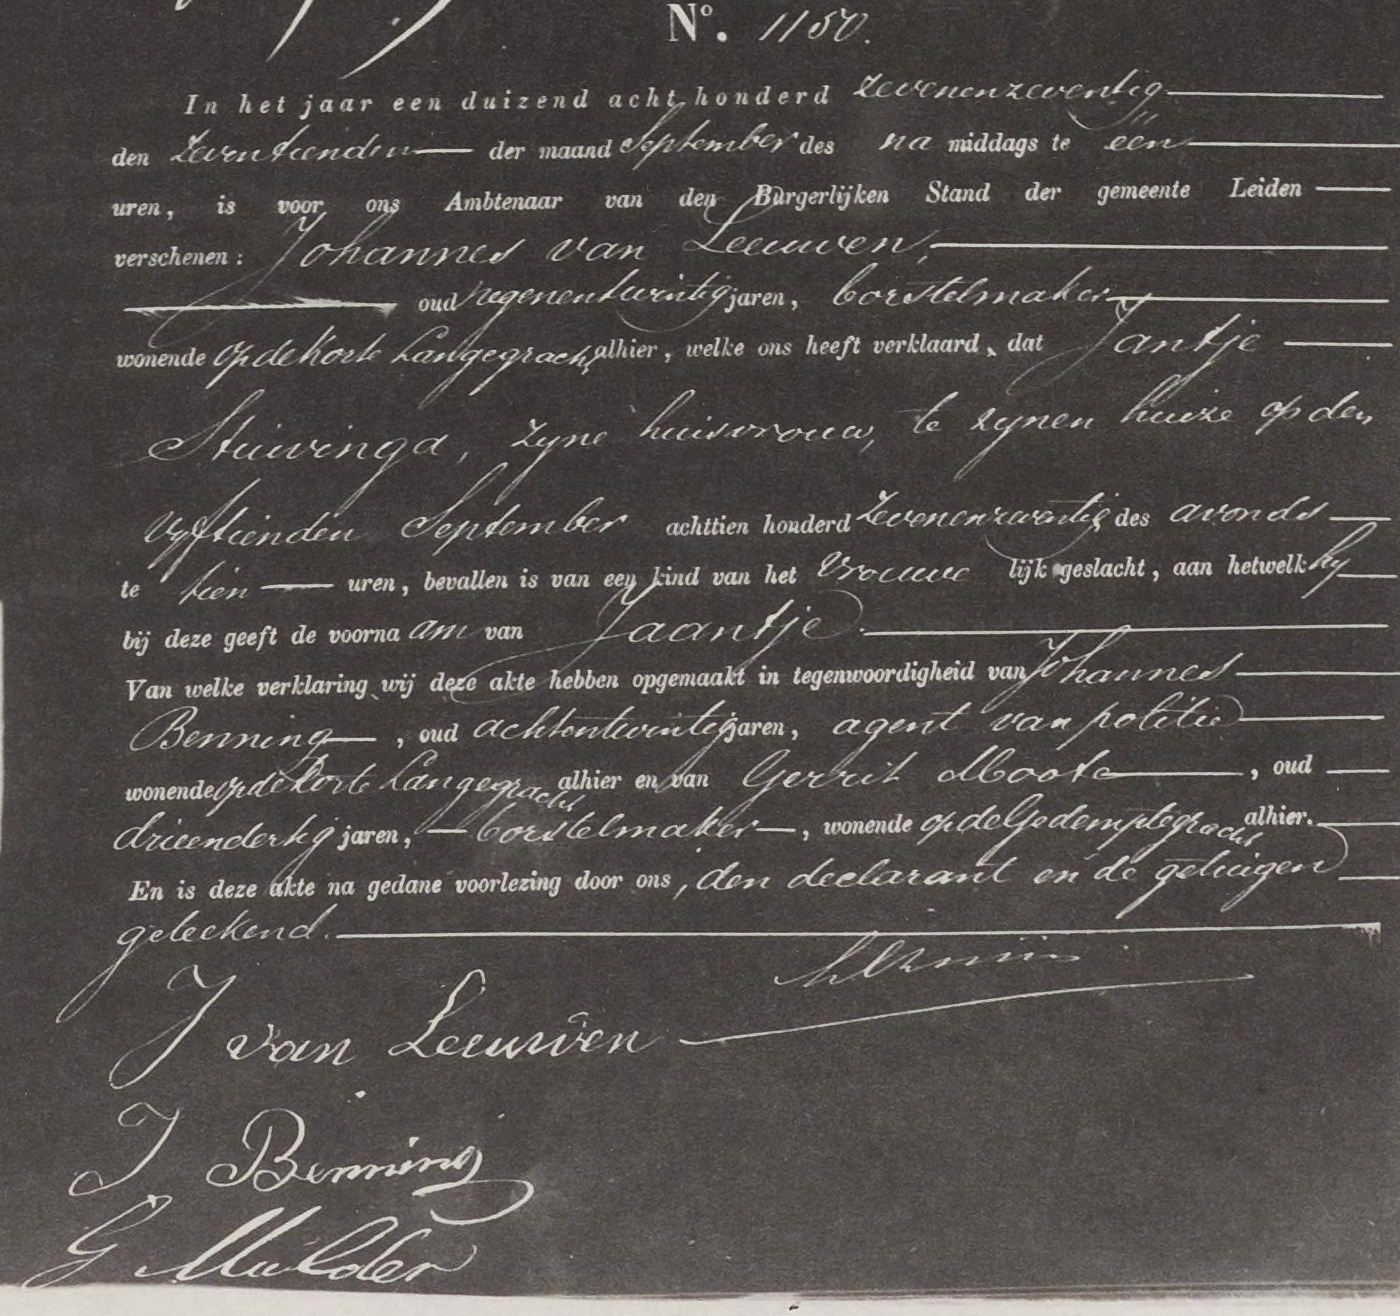 Nº. 1150.
In het jaar een duizend acht honderd zevenenzeventig
den zeventienden der maand September des na middags te één
uren, is voor ons Ambtenaar van den Burgerlijken Stand der gemeente Leiden
verschenen: Johannes van Leeuwen,
oud negenentwintig jaren, borstelmaker
wonende op de Korte Langegracht, alhier, welke ons heeft verklaard, dat Jantje
Stuivinga, zyne huisvrouw, te zynen huize op den
vyftienden September achttien honderd zevenenzeventig des avonds
te tien uren, bevallen is van een kind van het vrouwe lijk geslacht, aan hetwelk hy
bij deze geeft de voorna am van Jaantje.
Van welke verklaring wij deze akte hebben opgemaakt in tegenwoordigheid van Johannes
Benning, oud achtentwintig jaren, agent van politie
wonende op de Korte Langegracht alhier en van Gerrit, oud
drieendertig jaren, borstelmaker, wonende op de Gedemptegracht alhier.
En is deze akte na gedane voorlezing door ons, den declarant en de getuigen
geteekend.
J van Leeuwen
J Benning
G Mulder